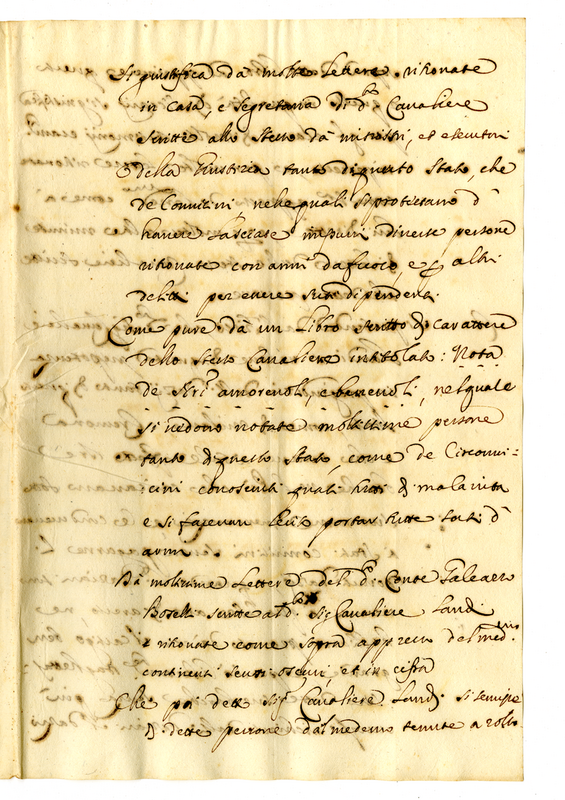 Si giustifica dà molte lettere ritrovate
in Casa, e segretaria di d.º Cavaliere
scritte allo stesso dà ministri, et esecutori
della Giustizia tanto di questo Stato, che
de Convicini nelle quali si protestano d'
havere lasciate impuni diverse persone
ritrovate con armi dafuoco, e altri
delitti per essere suoi dipendenti
Come pure dà un Libro scritto di carattere
dello stesso Cavaliere intitolato: Nota
de amorevoli, e benevoli, nel quale
si vedono notate moltissime persone
tanto di questo Stato, come de Circonvi=
cini conosciuti quali tutti di mala vita
e si facevan lecito portar tutte sorti d'
armi
Dà moltissime Lettere del d.º Conte Galeazzo
Boselli scritte al d.º Sig. Cavaliere Landi
e ritrovate come sopra appresso del med.mo
continenti sensi oscuri, et in cifra
Che poi detto Sig.r Cavaliere Landi si servisse
di dette persone dal medemo tenute a rollo